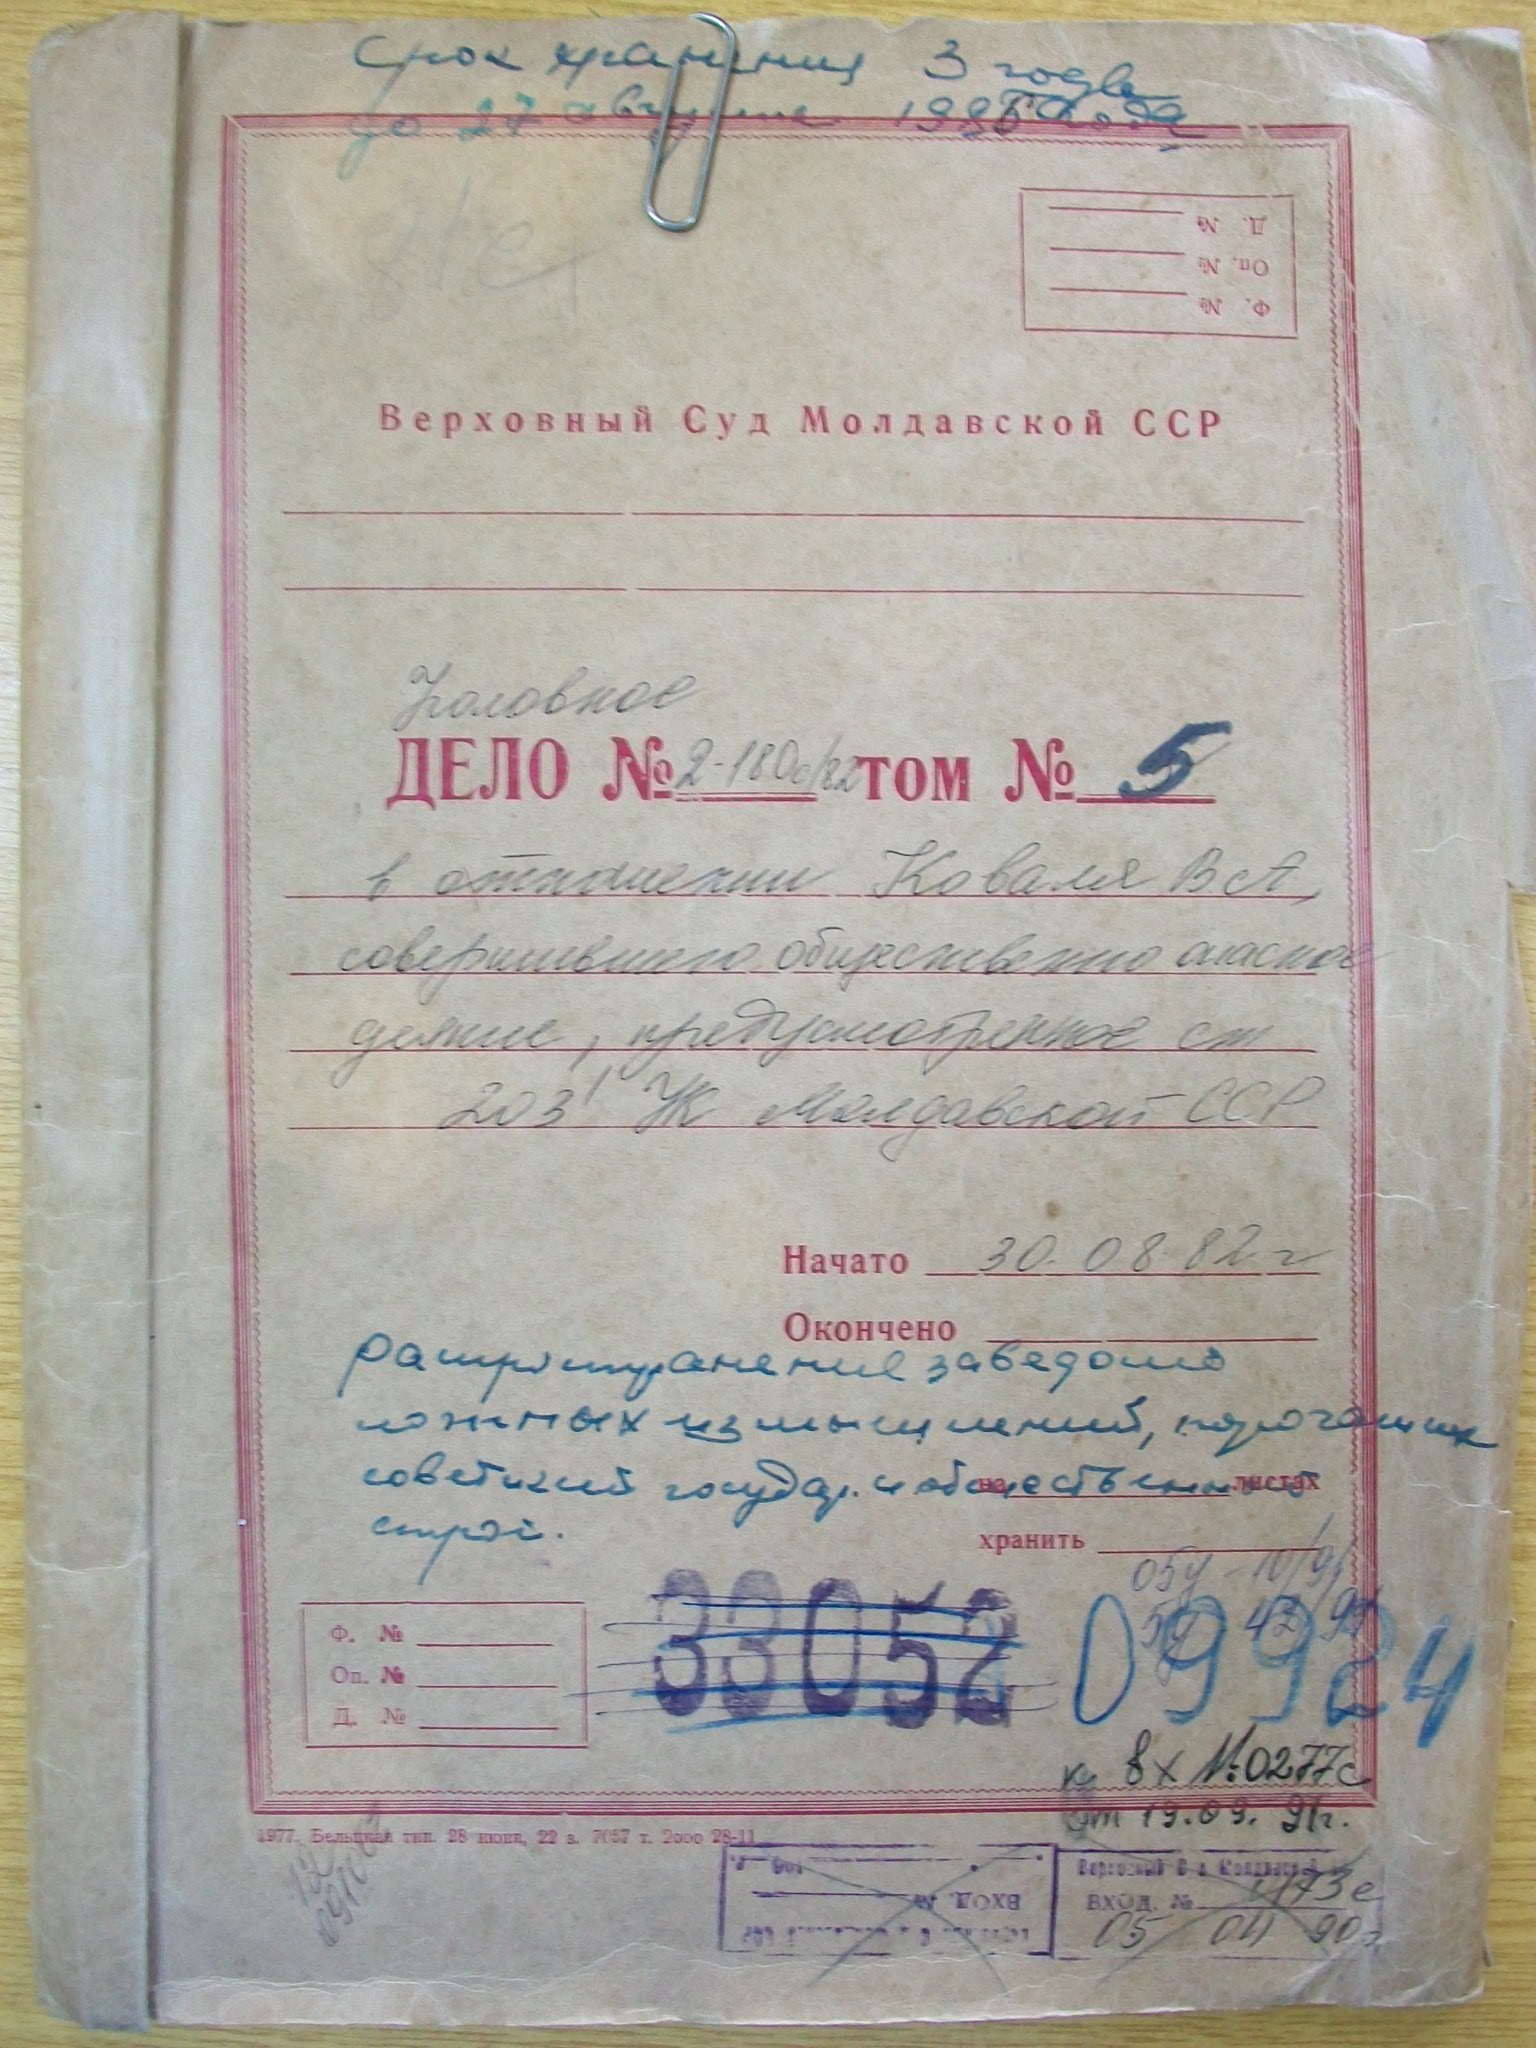 Срок хранения 3 года
до 27 августа 1995 года
Д. №
Оп. №
Ф. №
Верховный Суд Молдавской ССР
Уголовное
ДЕЛО № 2-180с/82 ТОМ № 5
в отношении Коваля В А,
совершившего общественно опасное
деяние, предусмотренное ст
203¹ УК Молдавской ССР
Начато 30.08.82 г
Окончено
распространение заведомо
ложных измышлений, порочащих
советский государ. и общественный
строй.
на листах
хранить
Ф. №
Оп. №
Д. №
33052 09924
к вх №0277с
от 19.09.91г.
1977. Бельцкая тип. 28 июня, 22 в. 7057 т. 2000 28-11
ВХОД. №
ВХОД. № 1173с
05 04 90г